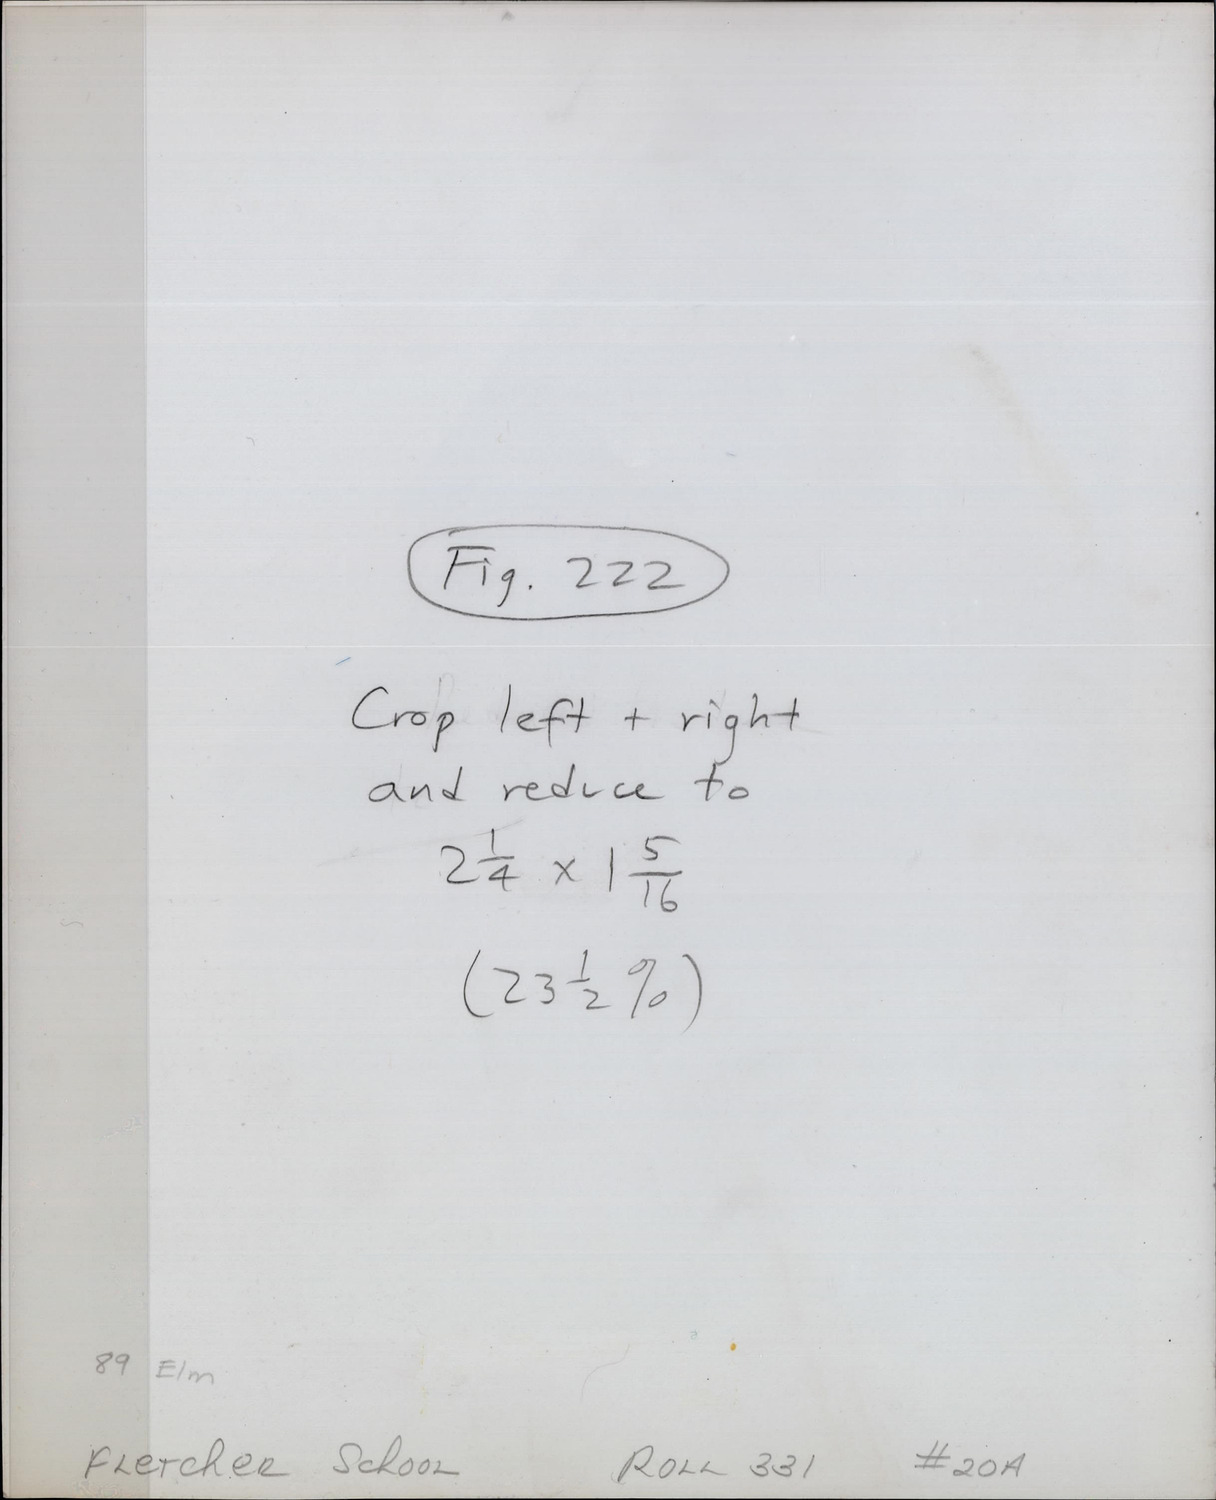 Fig. 222
Crop left + right
and reduce to
2 1/4 x 1 5/16
(23 1/2 %)
89 Elm
Fletcher School Roll 331 #20A